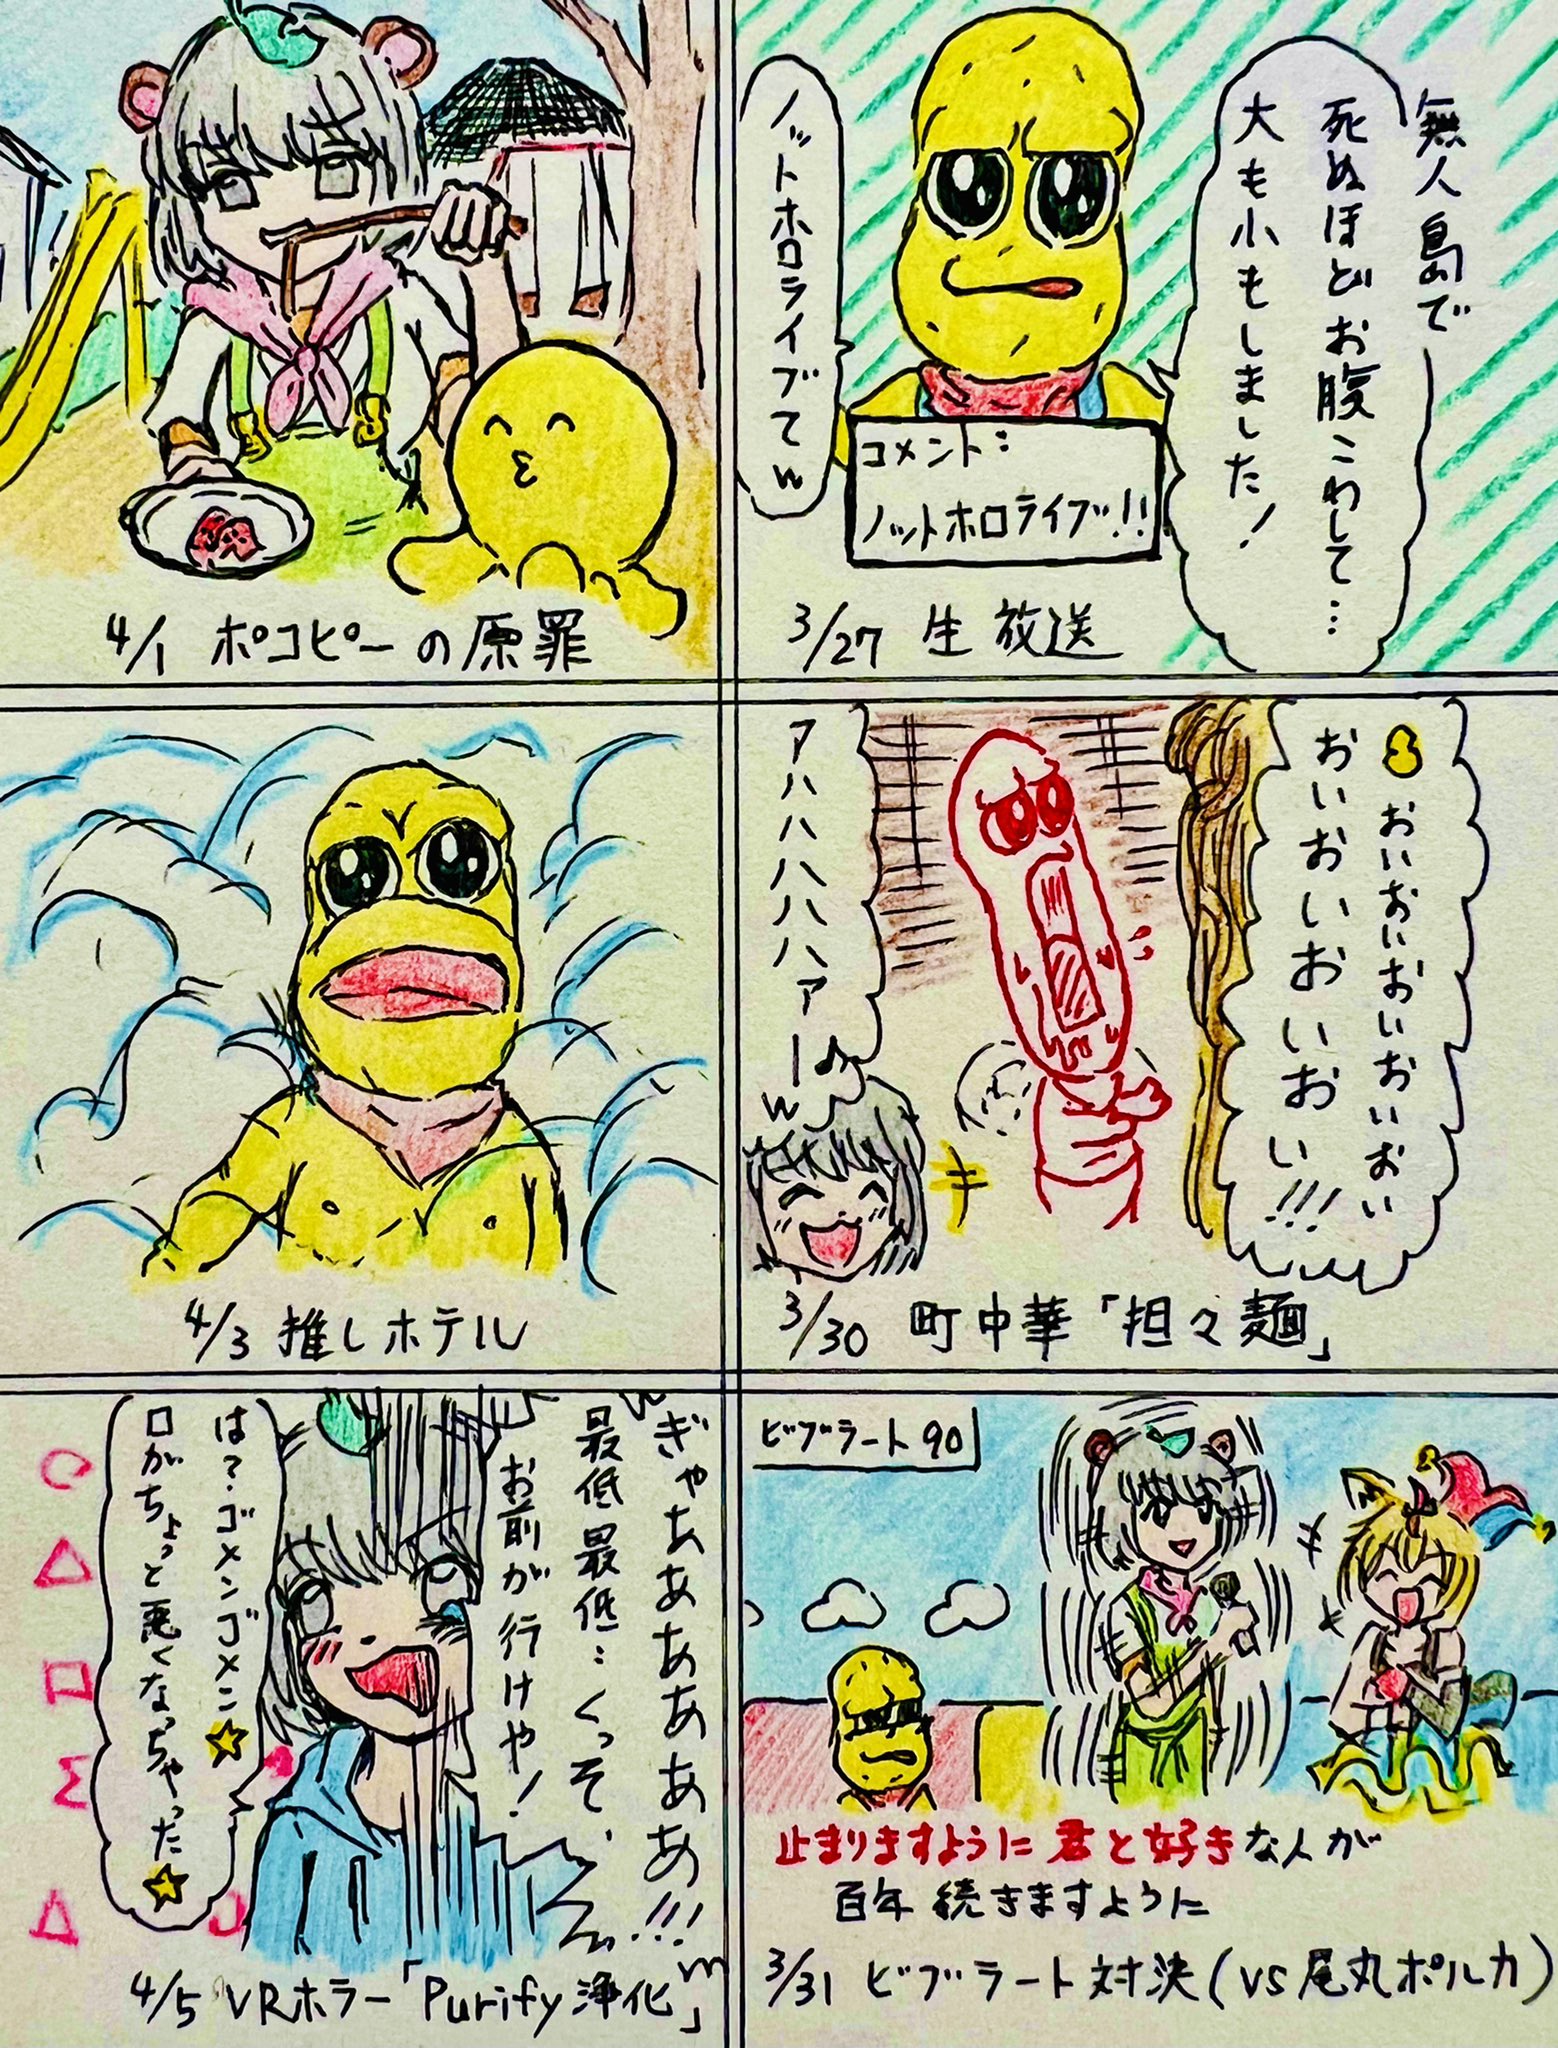 無人島で
死ぬほどお腹こわして…
大も小もしました!
ノットホロライブてw
コメント:
ノットホロライブ!!
3/27 生放送
おいおいおいおいおいおい
おいおいおいおいおい!!!
アハハハハハハァー♪
w
3/30 町中華「担々麺」
ビブラート90
止まりますように 君と好きな人が
百年 続きますように
3/31 ビブラート対決(VS尾丸ポルカ)
4/1 ポコピーの原罪
4/3 推しホテル
ぎゃああああああ!!!
最低最低…くっそ、
お前が行けや!
は?ゴメンゴメン☆
口がちょっと悪くなっちゃった☆
4/5 VRホラー「Purify浄化」